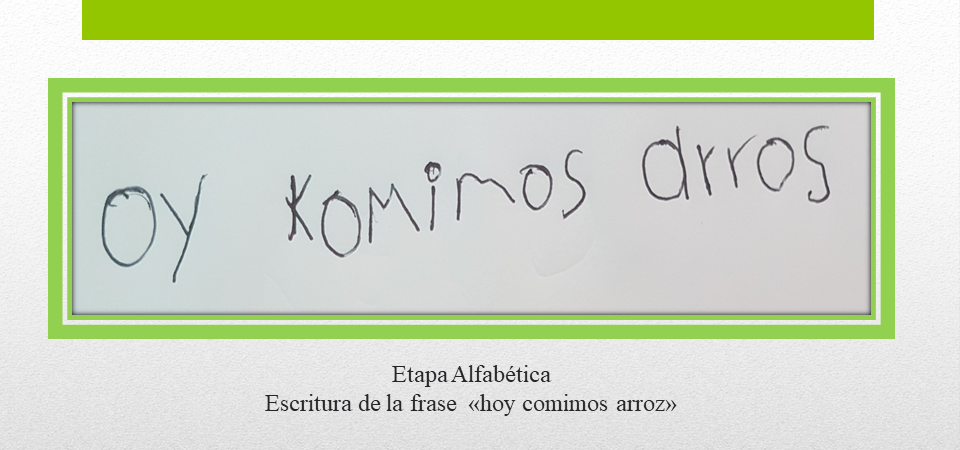 oy komimos arros
Etapa Alfabética
Escritura de la frase «hoy comimos arroz»